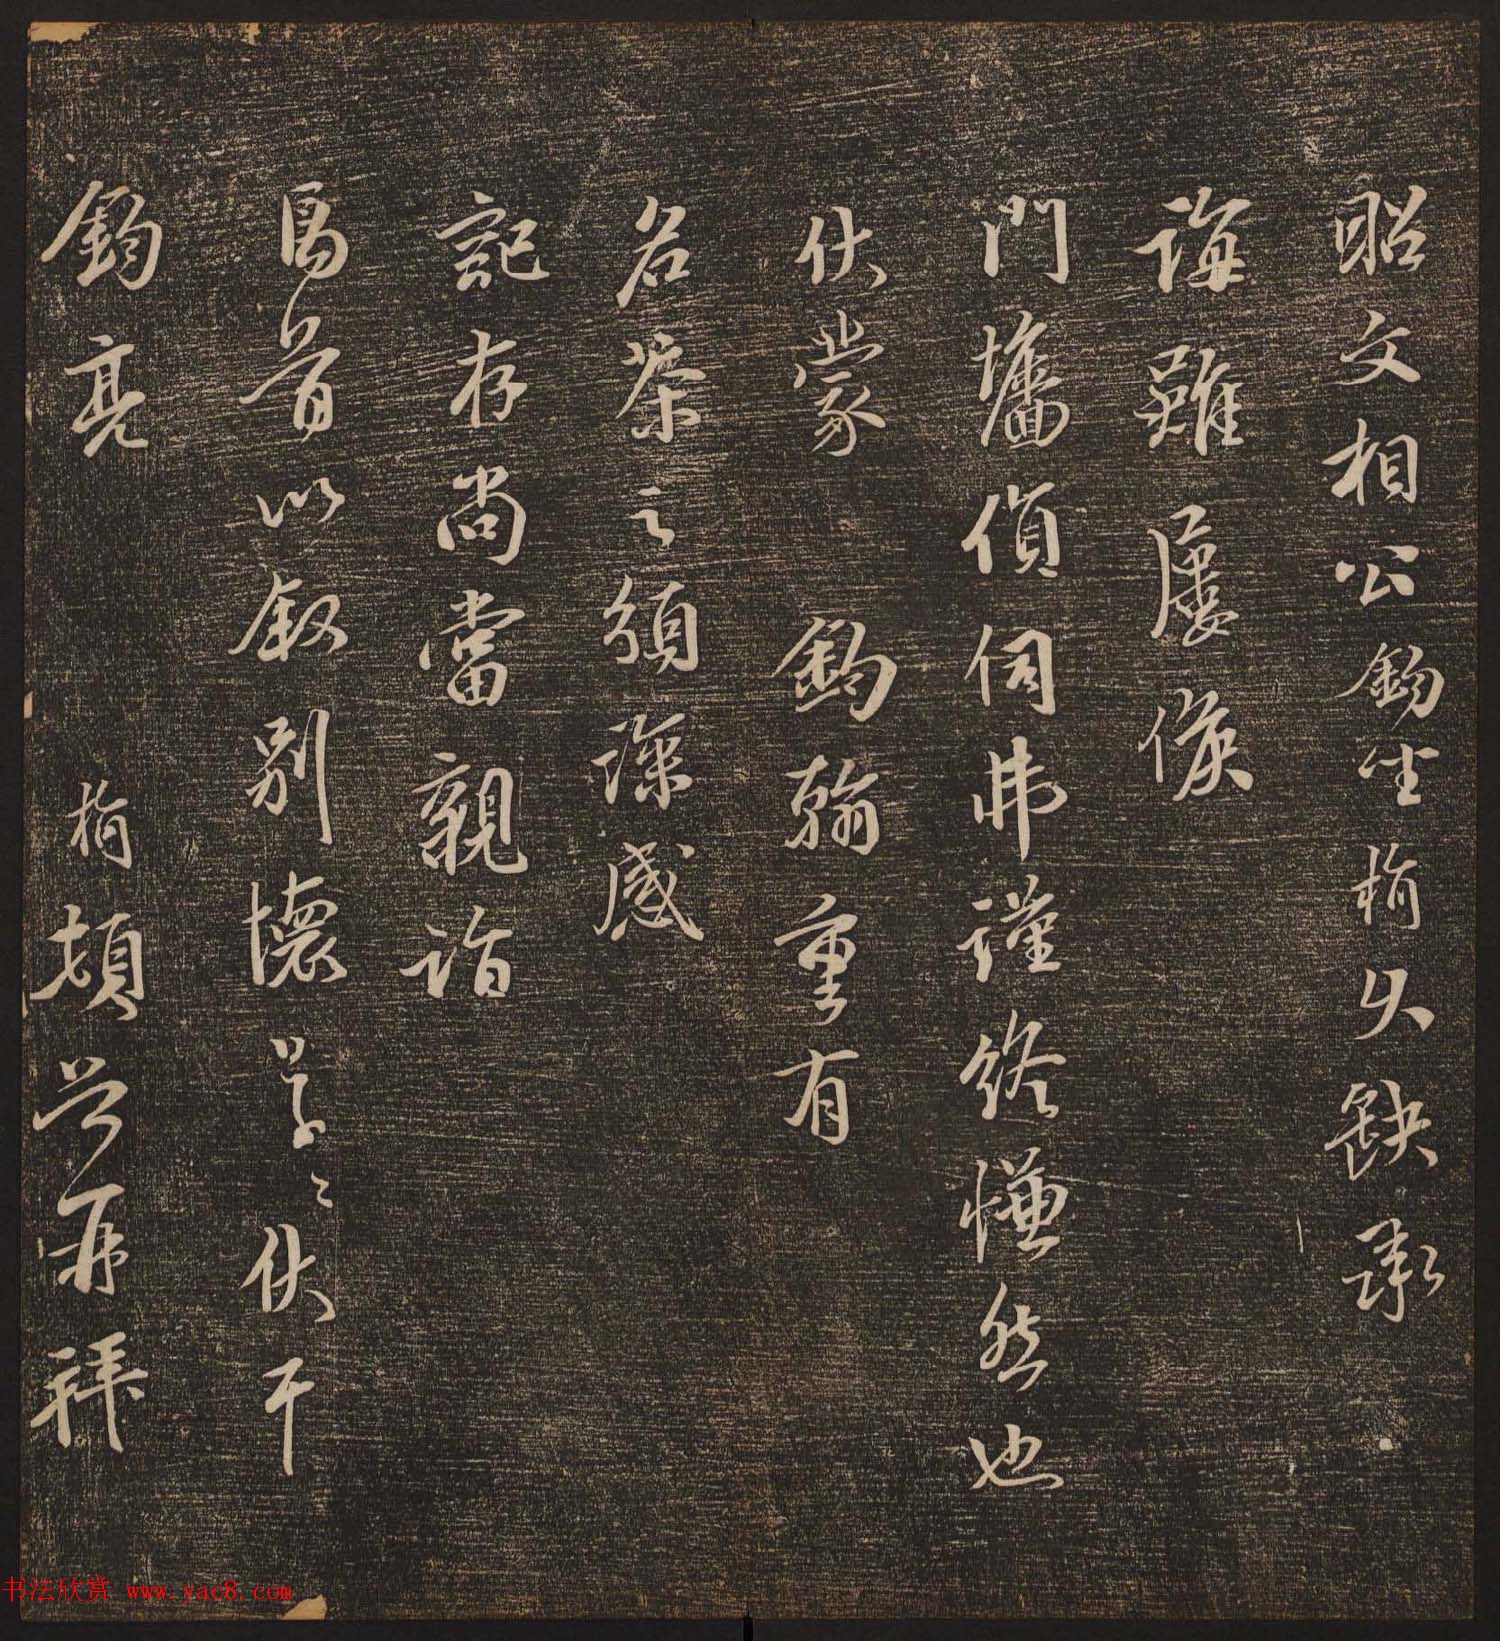 昭文相公鈞坐楠久缺承
誨雖屢候
門墻偵伺弗謹終慊然也
伏蒙鈞翰重有
名茶之頒深感
記存尚當親詣
馬首以敘別懷草々伏干
鈞亮楠頓首再拜
书法欣赏 www.yac8.com